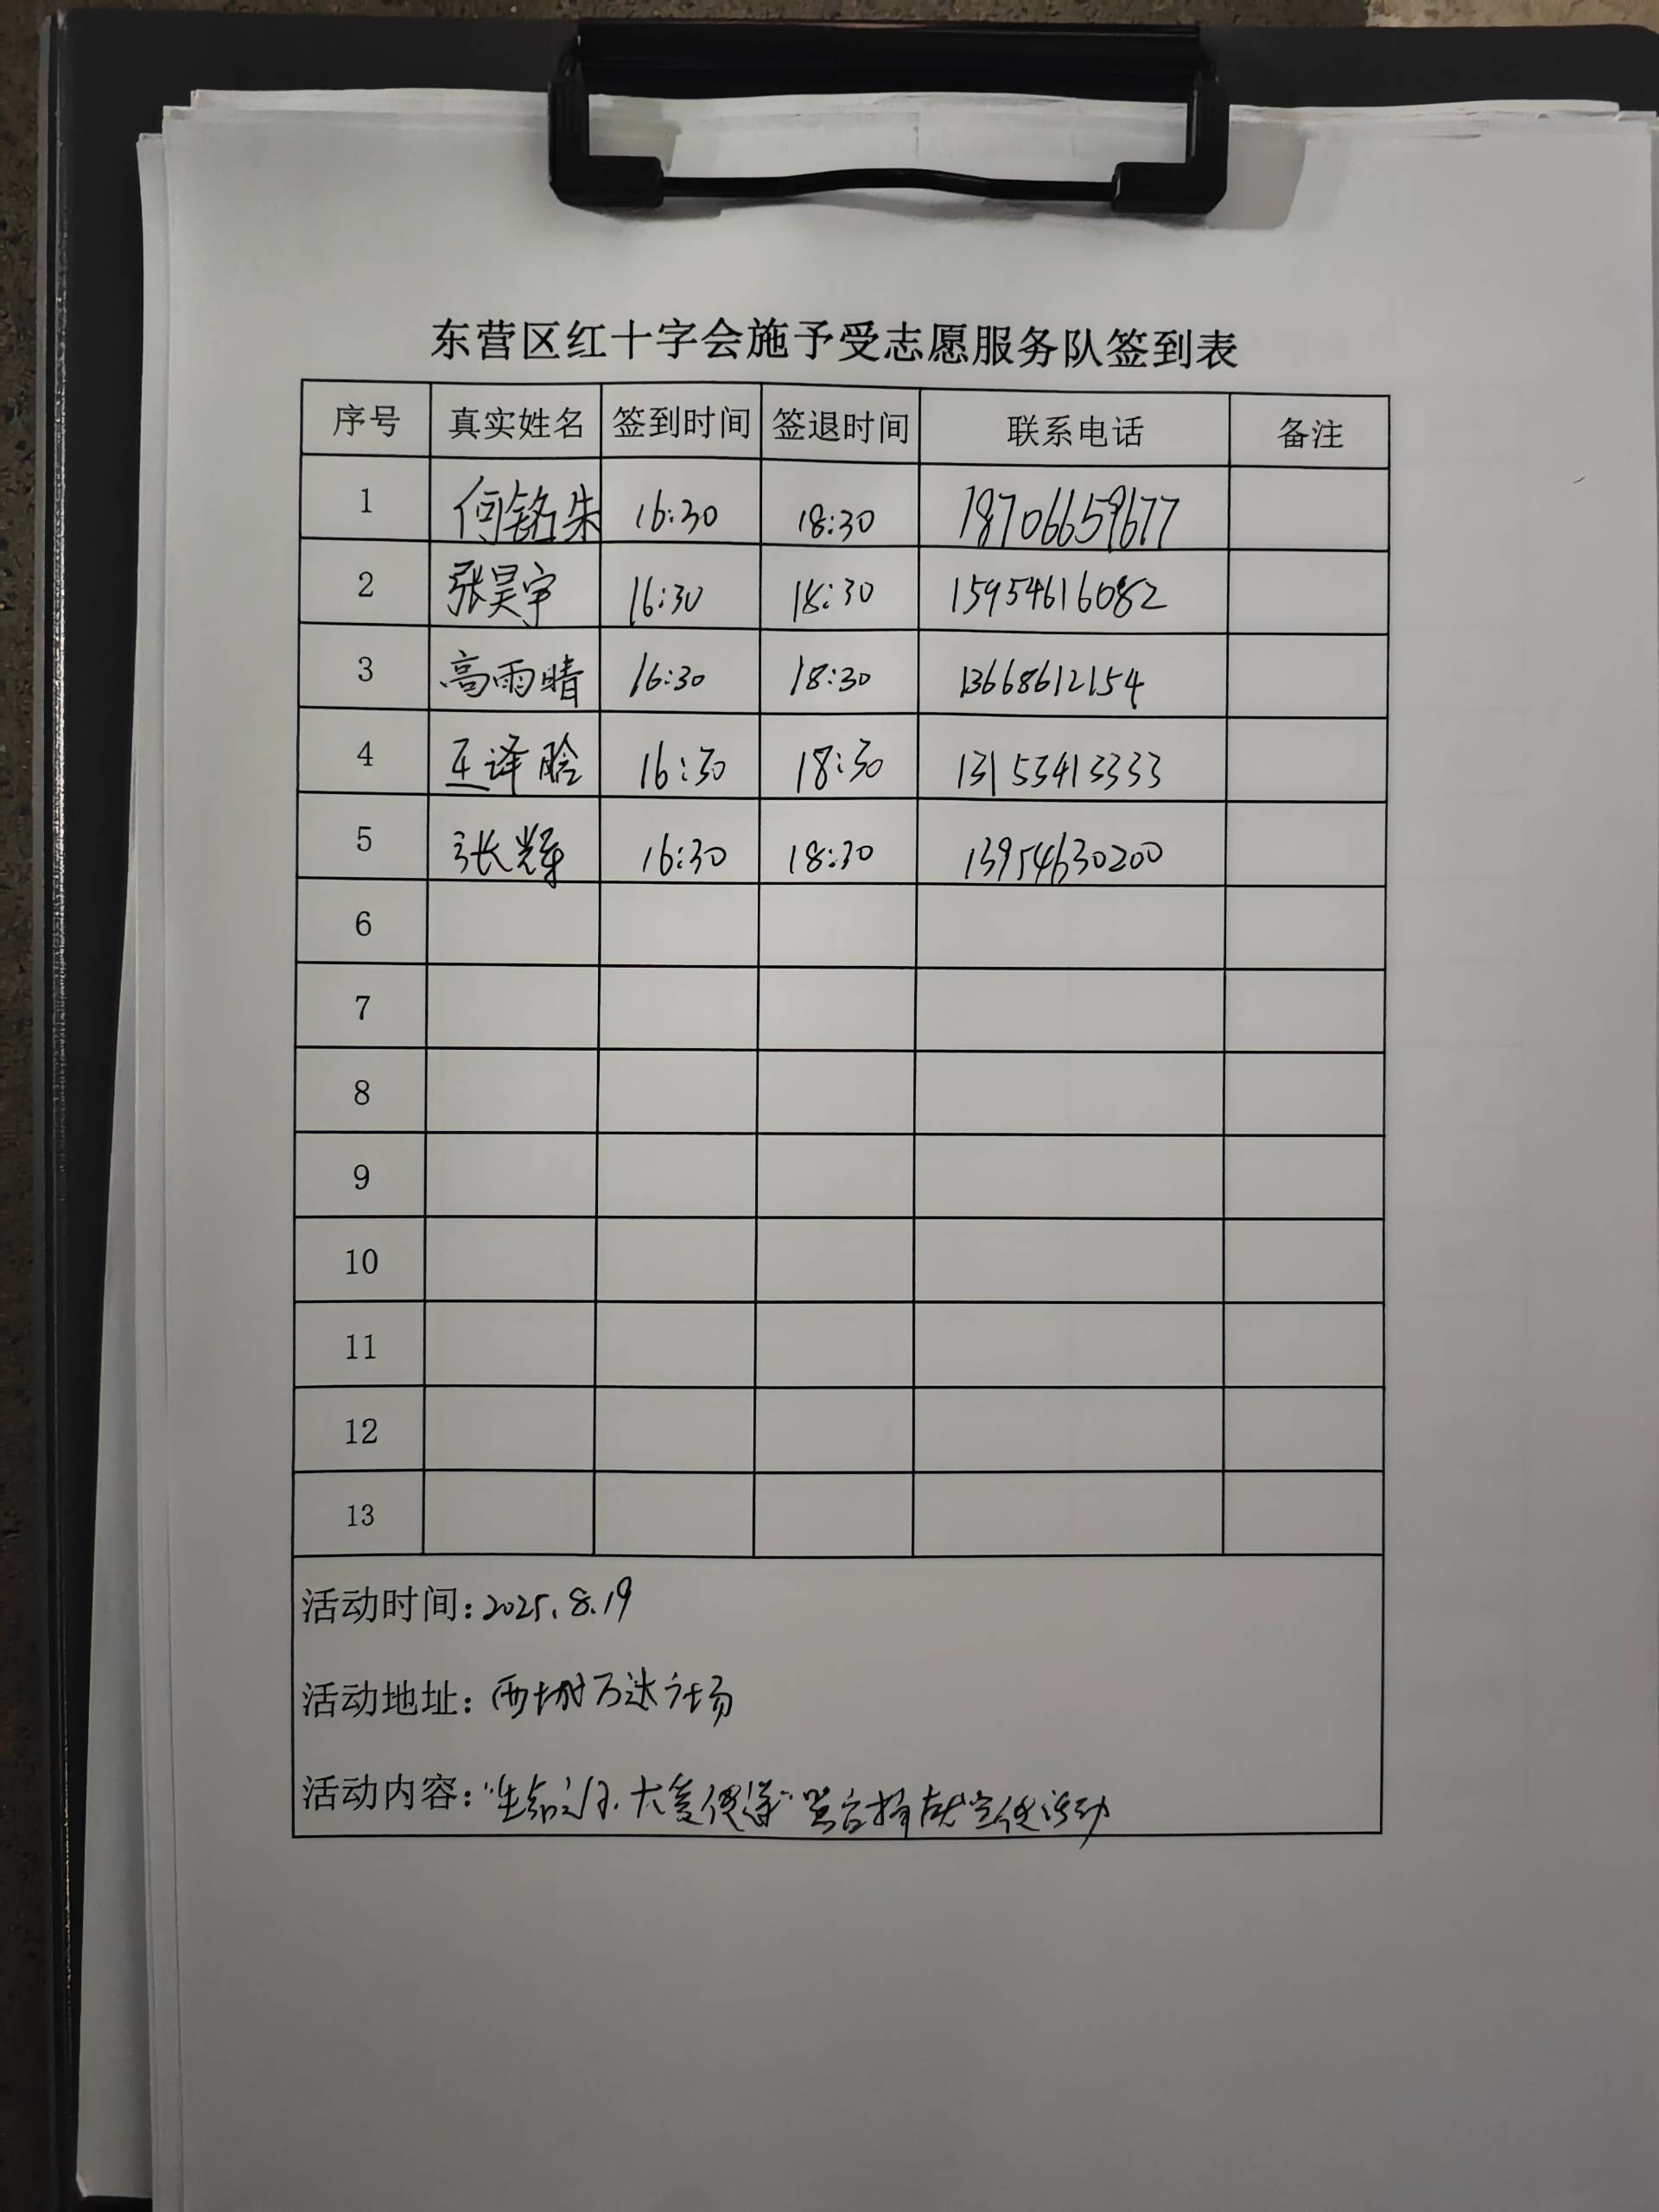 东营区红十字会施予受志愿服务队签到表
序号 真实姓名 签到时间 签退时间 联系电话 备注
1 何铭朱 16:30 18:30 18706659677
2 张昊宇 16:30 18:30 15954616082
3 高雨晴 16:30 18:30 13668612154
4 王译晗 16:30 18:30 13153413333
5 张辉 16:30 18:30 13954630200
6
7
8
9
10
11
12
13
活动时间:2025.8.19
活动地址:西城万达广场
活动内容:“生命之约.大爱传递”器官捐献宣传活动